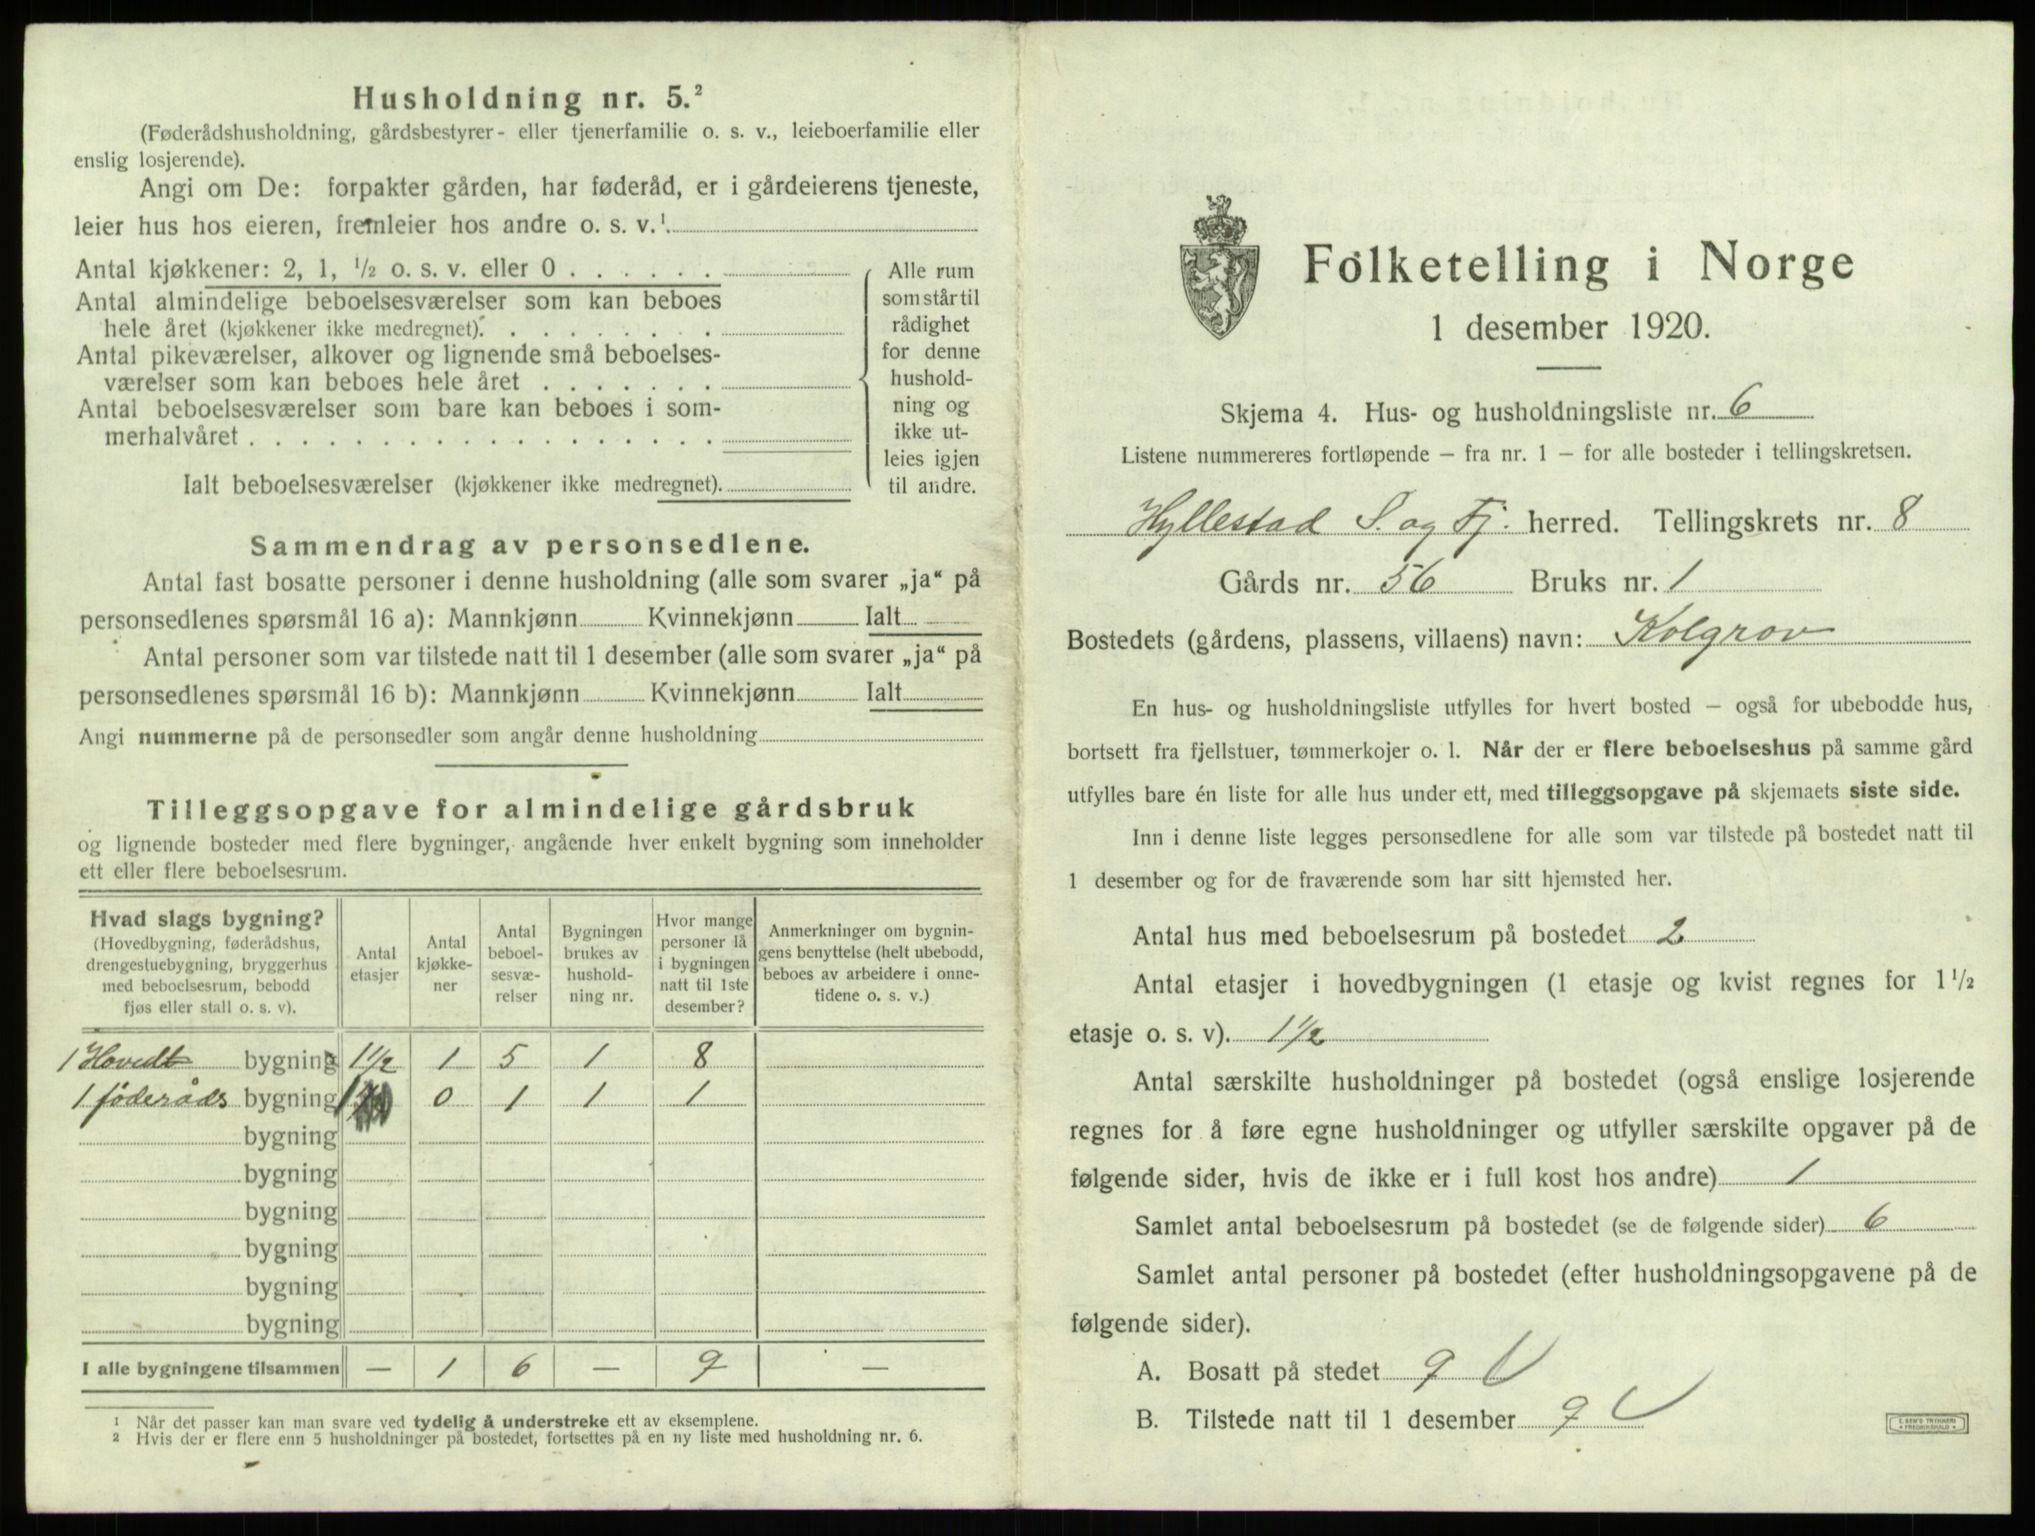 Husholdning nr. 5.²
(Føderådshusholdning, gårdsbestyrer- eller tjenerfamilie o. s. v., leieboerfamilie eller
enslig losjerende).
Angi om De: forpakter gården, har føderåd, er i gårdeierens tjeneste,
leier hus hos eieren, fremleier hos andre o. s. v.¹.
Antal kjøkkener: 2, 1, ½ o. s. v. eller 0 . . . . . .
Antal almindelige beboelsesværelser som kan beboes
hele året (kjøkkener ikke medregnet). . . . . . . .
Antal pikeværelser, alkover og lignende små beboelses-
værelser som kan beboes hele året . . . . . . .
Antal beboelsesværelser som bare kan beboes i som-
merhalvåret . . . . . . . . . . . . . . . . . .
Ialt beboelsesværelser (kjøkkener ikke medregnet).
Alle rum
som står til
rådighet
for denne
hushold-
ning og
ikke ut-
leies igjen
til andre.
Sammendrag av personsedlene.
Antal fast bosatte personer i denne husholdning (alle som svarer „ja“ på
personsedlenes spørsmål 16 a): Mannkjønn Kvinnekjønn Ialt
Antal personer som var tilstede natt til 1 desember (alle som svarer „ja“ på
personsedlenes spørsmål 16 b): Mannkjønn Kvinnekjønn Ialt
Angi nummerne på de personsedler som angår denne husholdning
Tilleggsopgave for almindelige gårdsbruk
og lignende bosteder med flere bygninger, angående hver enkelt bygning som inneholder
ett eller flere beboelsesrum.
Hvad slags bygning?
(Hovedbygning, føderådshus,
drengestuebygning, bryggerhus
med beboelsesrum, bebodd
fjøs eller stall o. s. v).
Antal
etasjer
Antal
kjøkke-
ner
Antal
beboel-
sesvæ-
relser
Bygningen
brukes av
hushold-
ning nr.
Hvor mange
personer lå
i bygningen
natt til 1ste
desember?
Anmerkninger om bygnin-
gens benyttelse (helt ubebodd,
beboes av arbeidere i onne-
tidene o. s. v.)
1 Hovedt bygning 1½ 1 5 1 8
1 føderåds bygning 1 0 1 1 1
bygning
bygning
bygning
bygning
bygning
bygning
I alle bygningene tilsammen — 1 6 — 9 —
¹ Når det passer kan man svare ved tydelig å understreke ett av eksemplene.
² Hvis der er flere enn 5 husholdninger på bostedet, fortsettes på en ny liste med husholdning nr. 6.
Folketelling i Norge
1 desember 1920.
Skjema 4. Hus- og husholdningsliste nr. 6
Listene nummereres fortløpende — fra nr. 1 — for alle bosteder i tellingskretsen.
Hyllestad S. og Fj. herred. Tellingskrets nr. 8
Gårds nr. 56 Bruks nr. 1
Bostedets (gårdens, plassens, villaens) navn: Kolgrov
En hus- og husholdningsliste utfylles for hvert bosted — også for ubebodde hus,
bortsett fra fjellstuer, tømmerkojer o. l. Når der er flere beboelseshus på samme gård
utfylles bare én liste for alle hus under ett, med tilleggsopgave på skjemaets siste side.
Inn i denne liste legges personsedlene for alle som var tilstede på bostedet natt til
1 desember og for de fraværende som har sitt hjemsted her.
Antal hus med beboelsesrum på bostedet 2
Antal etasjer i hovedbygningen (1 etasje og kvist regnes for 1½
etasje o. s. v). 1½
Antal særskilte husholdninger på bostedet (også enslige losjerende
regnes for å føre egne husholdninger og utfyller særskilte opgaver på de
følgende sider, hvis de ikke er i full kost hos andre) 1
Samlet antal beboelsesrum på bostedet (se de følgende sider) 6
Samlet antal personer på bostedet (efter husholdningsopgavene på de
følgende sider).
A. Bosatt på stedet 9
B. Tilstede natt til 1 desember 9